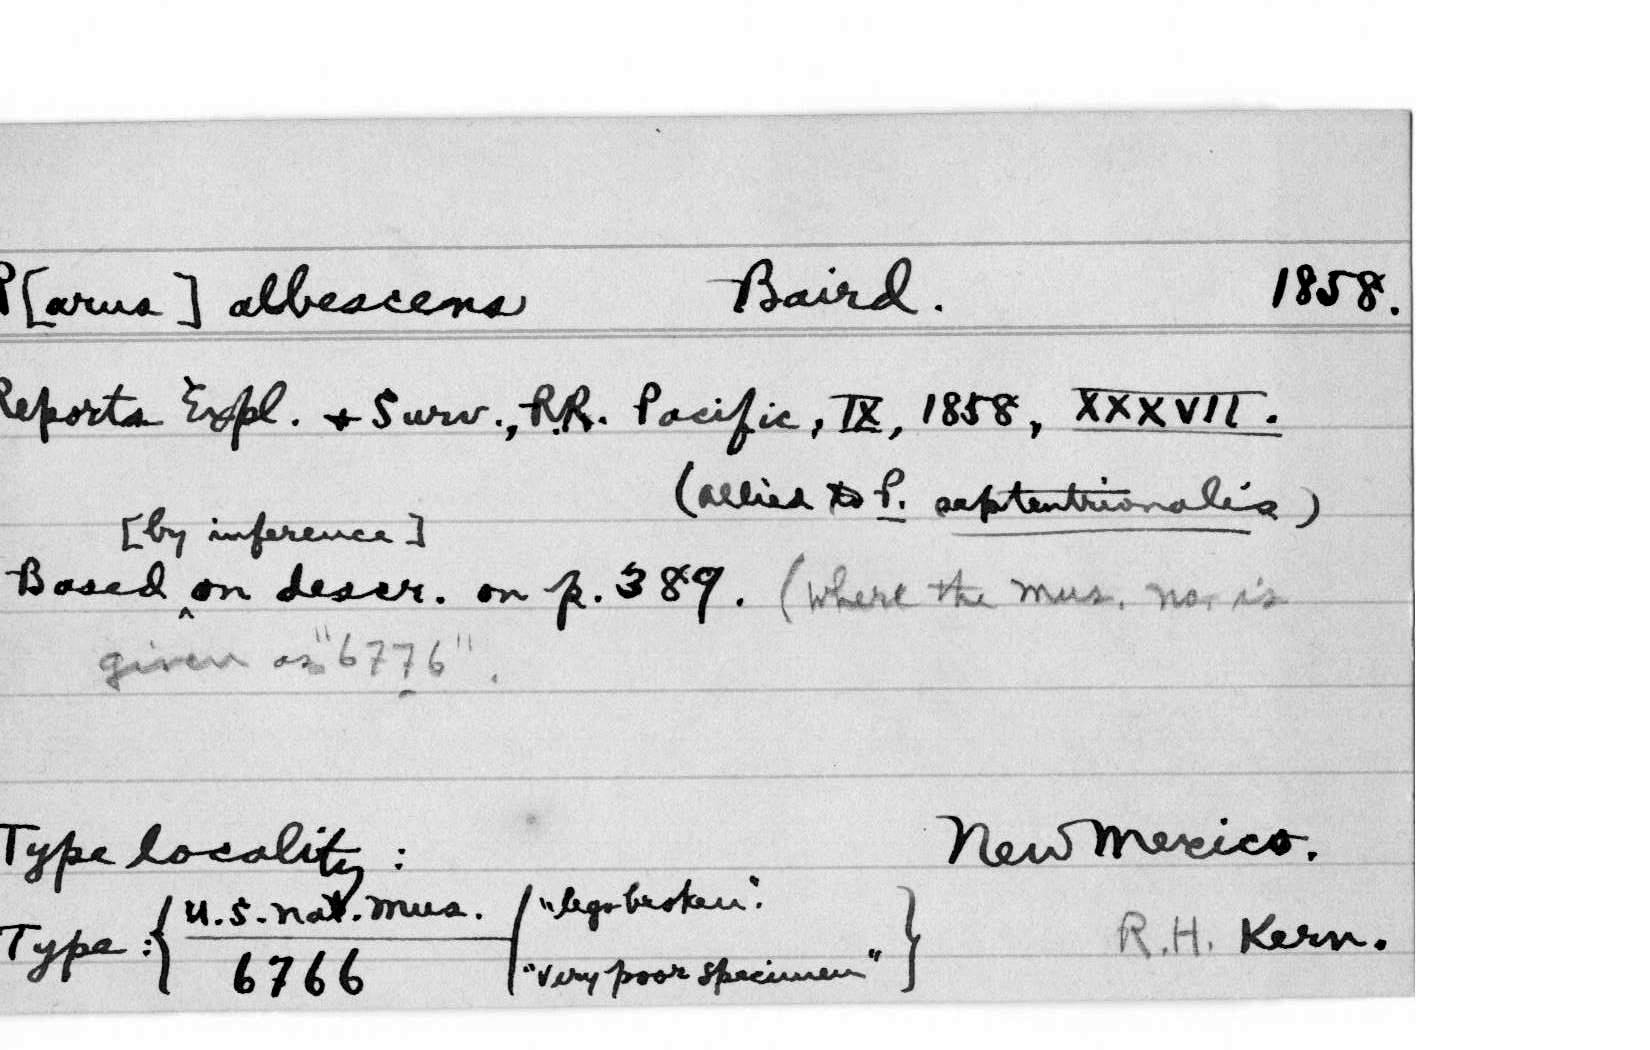 P[arus] albescens Baird. 1858.
Reports Expl. + Surv., R.R. Pacific, IX, 1858, XXXVII.
(allied to P. septentrionalis)
[by inference]
Based ‸ on descr. on p. 389. (where the mus. no. is
given as "6776".
Type locality : New Mexico.
Type : { U.S. Nat. Mus. / 6766 ( "legs broken". "very poor specimen" } R.H. Kern.